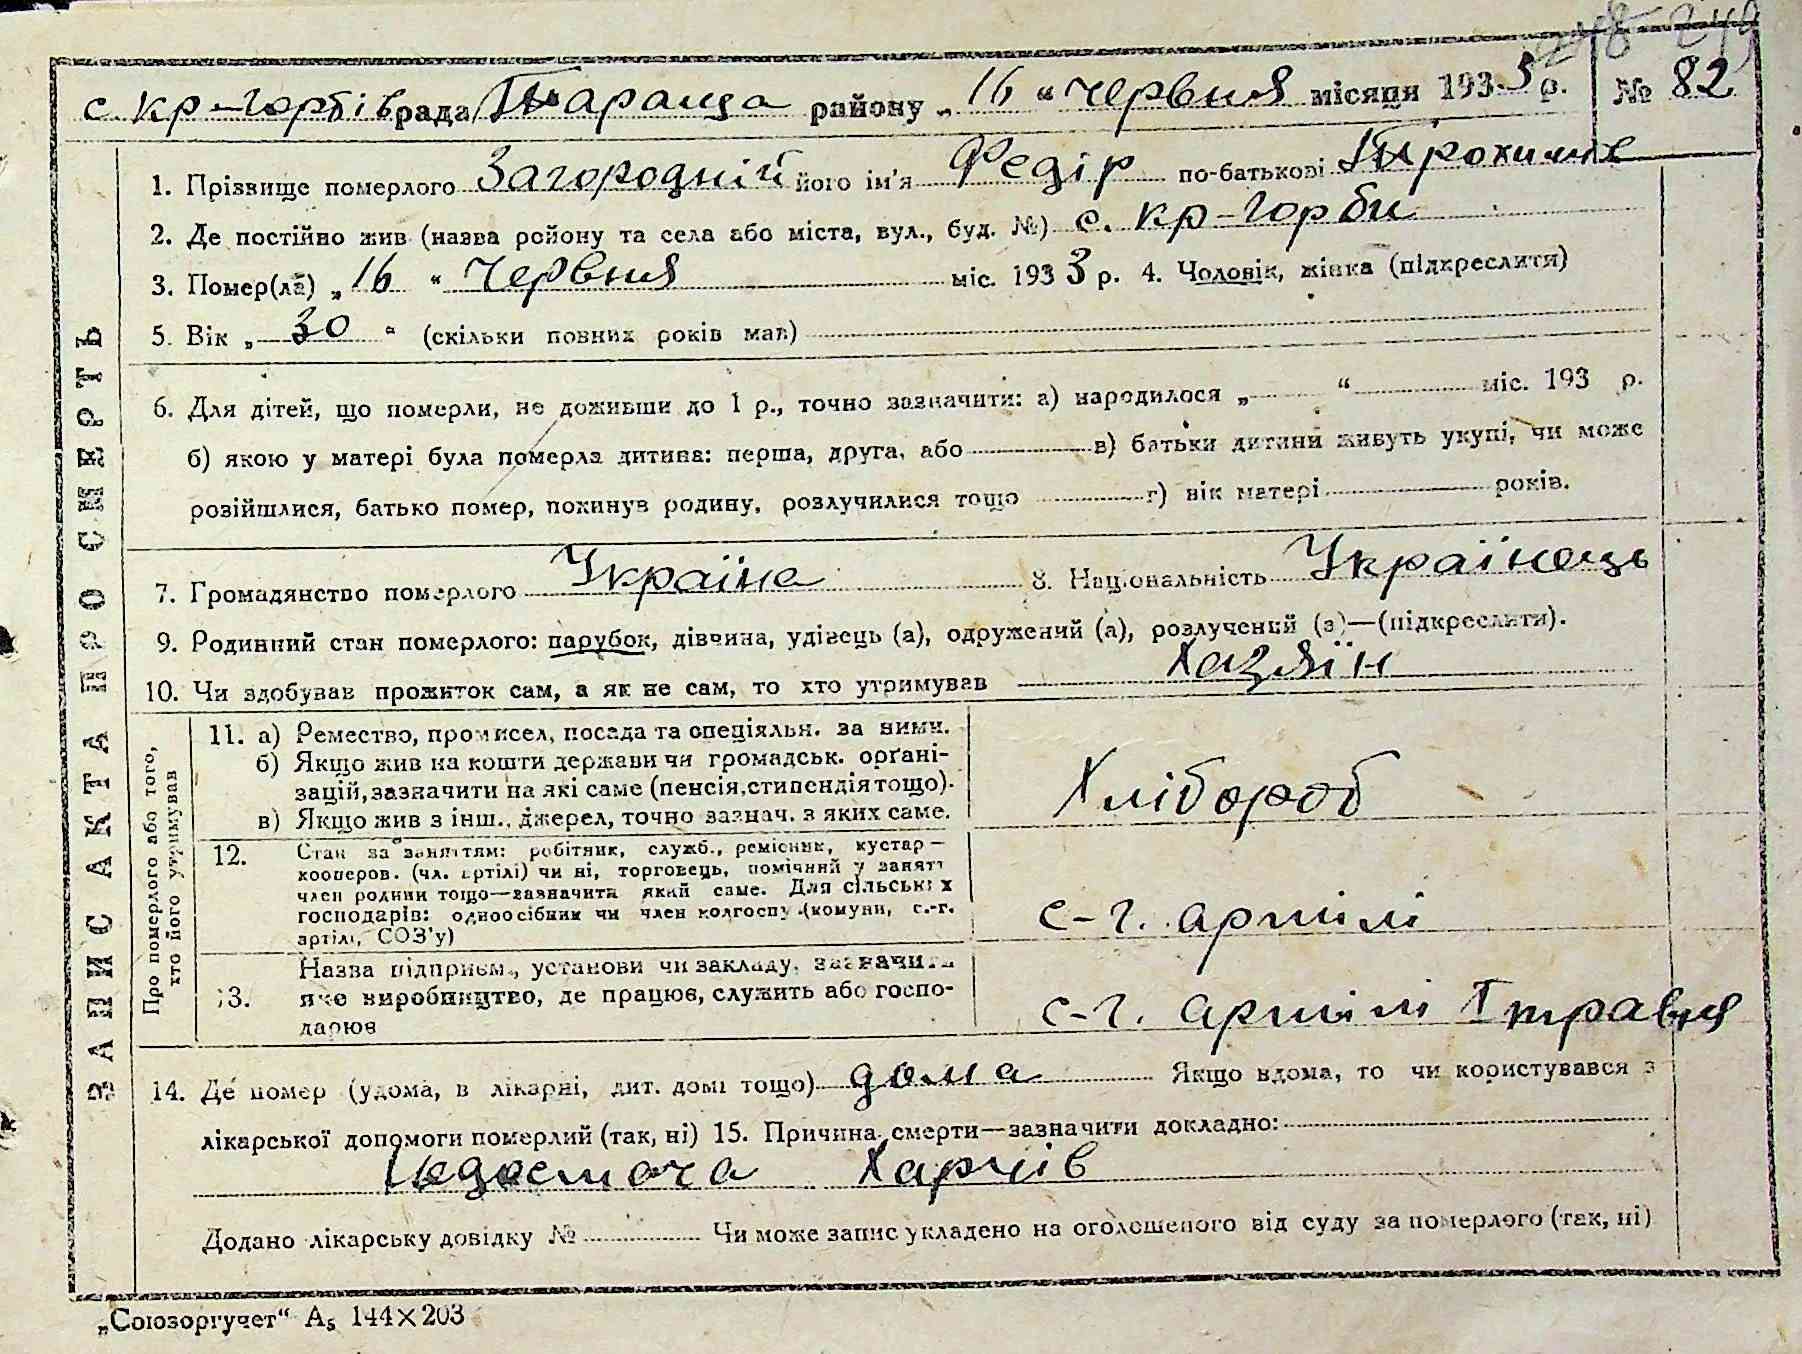 с. Кр-Горби рада Тараща району „16 “ Червня місяця 1933 р. № 82
1. Прізвище померлого Загородній його ім'я Федір по-батькові Трохимів
2. Де постійно жив (назва району та села або міста, вул., буд. №) с. Кр-Горби
3. Помер(ла) „ 16 “ Червня міс. 1933 р. 4. Чоловік, жінка (підкреслити)
5. Вік „ 30 “ (скільки повних років мав)
6. Для дітей, що померли, не доживши до 1 р., точно зазначити: а) народилося „ “ міс. 193 р.
б) якою у матері була померла дитина: перша, друга, або в) батьки дитини живуть укупі, чи може
розійшлися, батько помер, покинув родину, розлучилися тощо г) вік матері років.
7. Громадянство померлого Україна 8. Національність Українець
9. Родинний стан померлого: парубок, дівчина, удівець (а), одружений (а), розлучений (а)—(підкреслити).
10. Чи здобував прожиток сам, а як не сам, то хто утримував Хазяїн
ЗАПИС АКТА ПРО СМЕРТЬ
Про померлого або того,
хто його утримував
11. а) Ремество, промисел, посада та спеціяльн. за ними.
б) Якщо жив на кошти держави чи громадськ. органі-
зацій, зазначити на які саме (пенсія, стипендія тощо).
в) Якщо жив з інш., джерел, точно зазнач. з яких саме.
Хлібороб
12. Стан за заняттям: робітник, служб., ремісник, кустар—
кооперов. (чл. артілі) чи ні, торговець, помічний у занятт
член родини тощо—зазначити який саме. Для сільських
господарів: одноосібник чи член колгоспу (комуни, с.-г.
артілі, СОЗ'у)
с-г. артілі
13. Назва підприєм., установи чи закладу, зазначити
яке виробництво, де працює, служить або госпо-
дарює
с-г. артілі 1 травня
14. Де помер (удома, в лікарні, дит. домі тощо) дома Якщо вдома, то чи користувався з
лікарської допомоги померлий (так, ні) 15. Причина смерти—зазначити докладно:
Недостача Харчів
Додано лікарську довідку № Чи може запис укладено на оголошеного від суду за померлого (так, ні)
„Союзоргучет“ А₅ 144×203